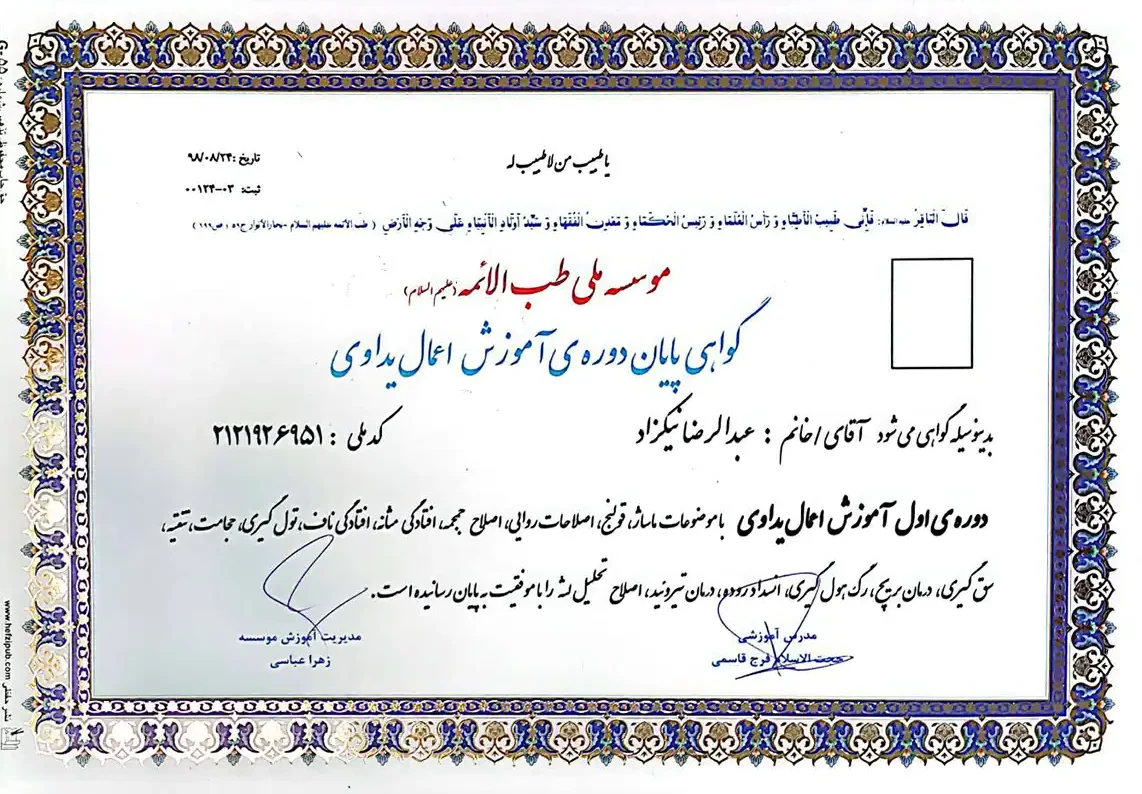 یا طبیب من لا طبیب له
تاریخ :۹۸/۰۸/۲۴
ثبت: ۰۳-۰۰۱۲۴
قالَ الْباقِرُ علیه السلام: فَإِنِّی طَبِیبُ الْأَطِبَّاءِ وَ رَأْسُ الْعُلَمَاءِ وَ رَئِیسُ الْحُکَمَاءِ وَ مَعْدِنُ الْفُقَهَاءِ وَ سَیِّدُ أَوْلَادِ الْأَنْبِیَاءِ عَلَی وَجْهِ الْأَرْضِ ( طب الائمه علیهم السلام -بحارالأنوار ج۵۹ ؛ ص۱۹۹ )
موسسه ملی طب الائمه (علیهم السلام)
گواهی پایان دوره ی آموزش اعمال یداوی
بدینوسیله گواهی می شود آقای / خانم : عبدالرضا نیکزاد کد ملی : ۲۱۲۱۹۲۶۹۵۱
دوره ی اول آموزش اعمال یداوی با موضوعات ماساژ، قولنج، اصلاحات روایی، اصلاح جمجمه، افتادگی مثانه، افتادگی ناف، تول گیری، حجامت، تنقیه،
سق گیری، درمان بریچ، رگ هول گیری، انسداد روده، درمان تیروئید، اصلاح تحلیل لثه را با موفقیت به پایان رسانیده است.
مدرس آموزشی
حجت الاسلام فرج قاسمی
مدیریت آموزش موسسه
زهرا عباسی
www.hefzipub.com